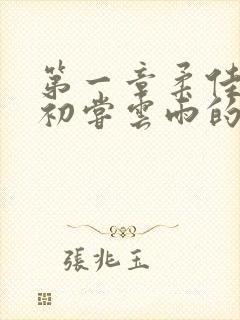 第一章柔佳
初嘗雲雨的
張兆玉